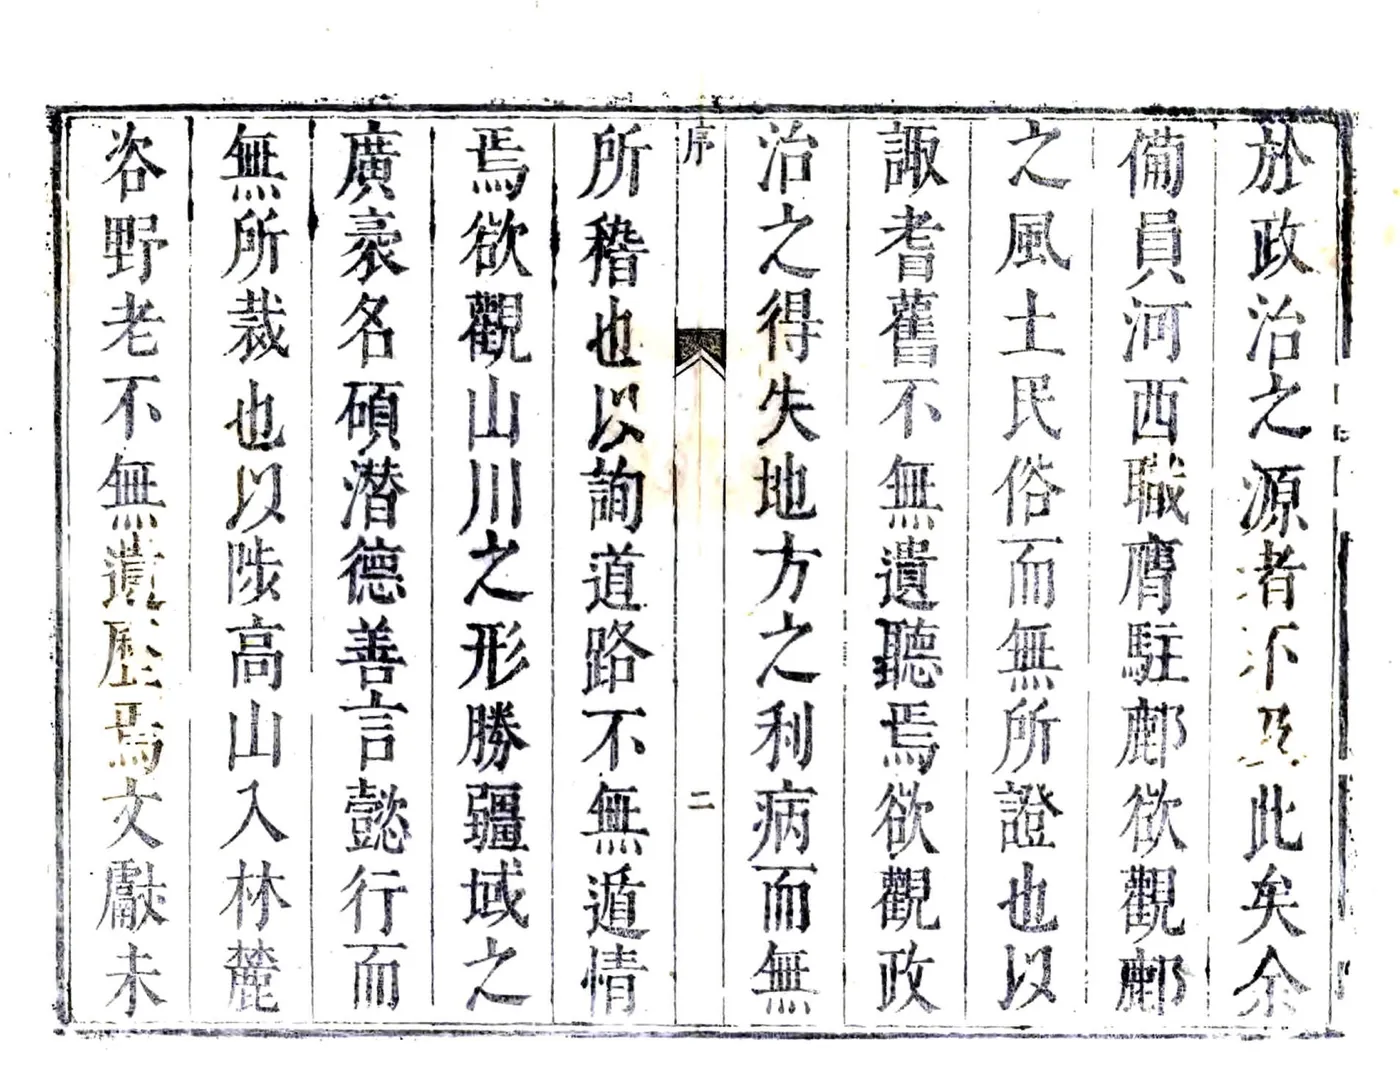 於政治之源者不及此矣余
備員河西職膺駐鄜欲觀鄜
之風土民俗而無所證也以
諏耆舊不無遺聽焉欲觀政
治之得失地方之利病而無
序
二
所稽也以詢道路不無遁情
焉欲觀山川之形勝疆域之
廣袤名碩潛德善言懿行而
無所裁也以陟高山入林麓
咨野老不無遺歷焉文獻未